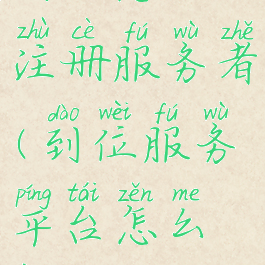 zhù cè fú wù zhě
注册服务者
dào wèi fú wù
(到位服务
píng tái zěn me
平台怎么